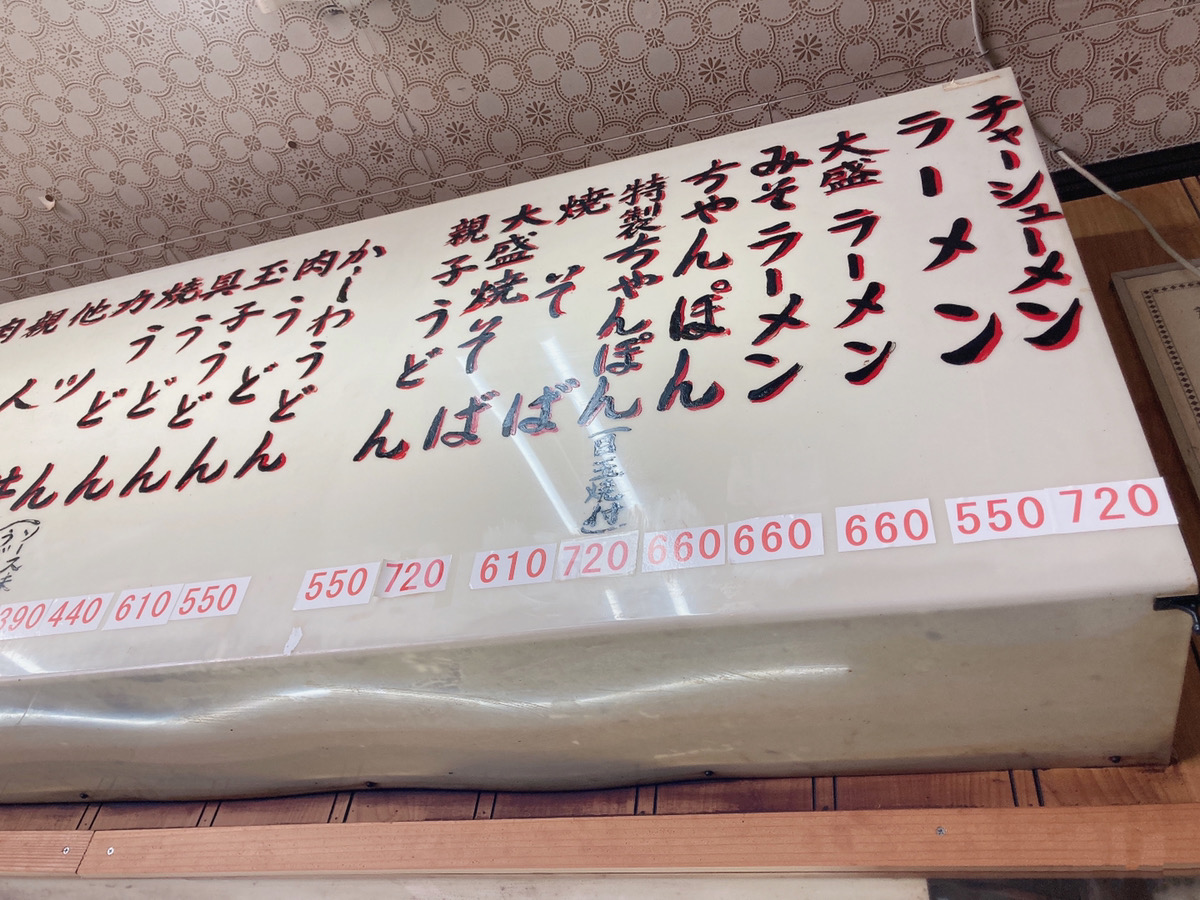 チャーシューメン
ラーメン
大盛ラーメン
みそラーメン
ちゃんぽん
特製ちゃんぽん
目玉焼付
焼そば
大盛焼そば
親子うどん
かしわうどん
肉うどん
玉子うどん
具うどん
焼うどん
カツ
他人
親
肉
720
550
660
660
660
720
610
720
550
550
610
440
390